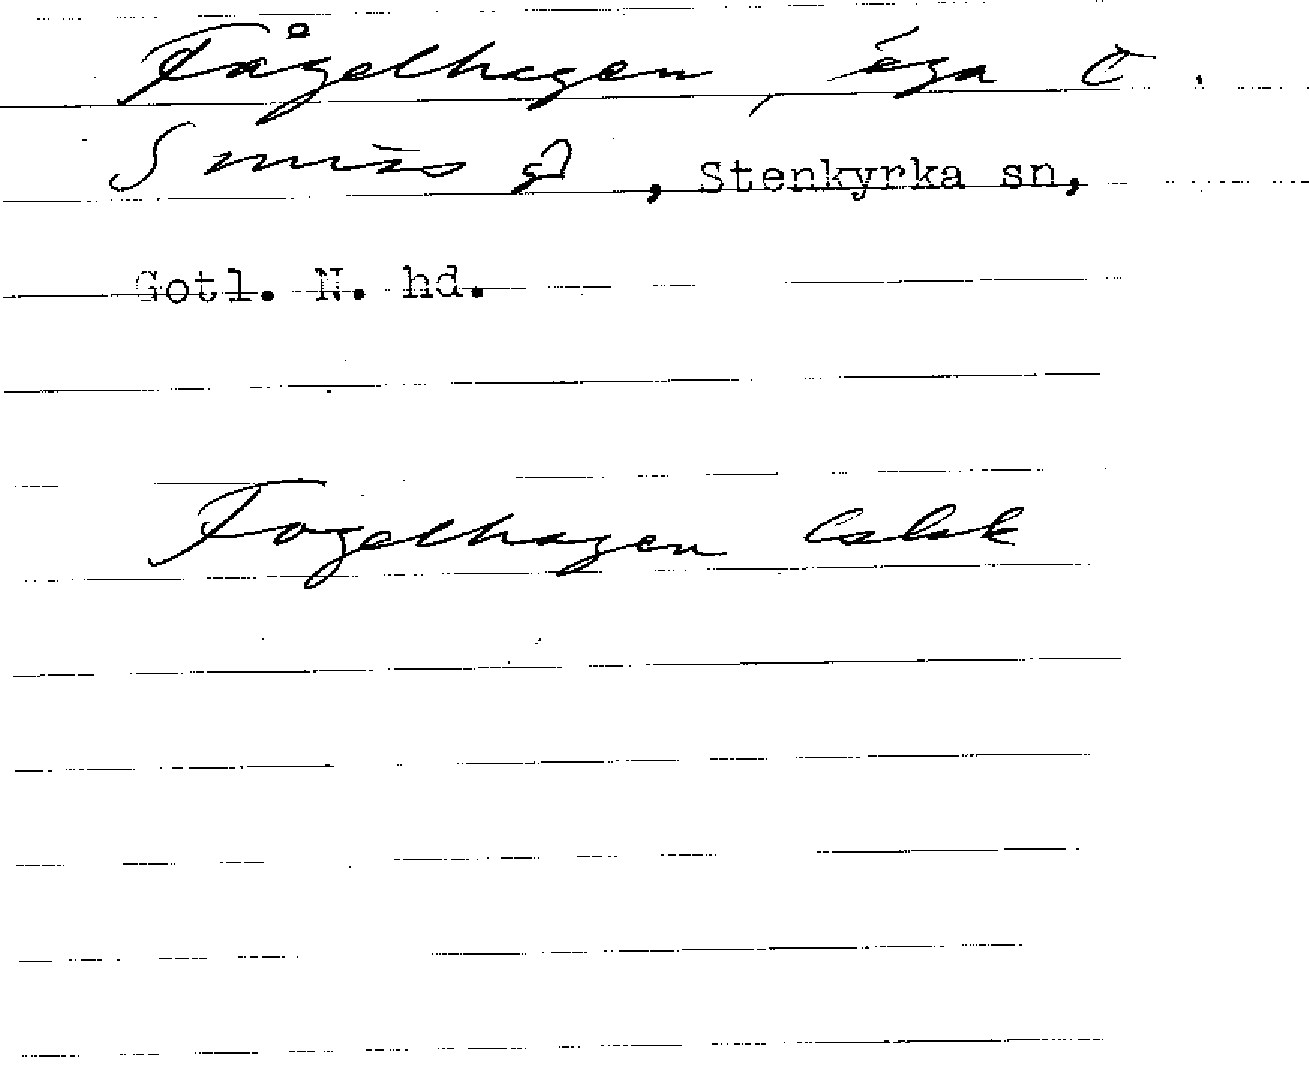 Fågelhagen, äga Ö.
Smiss gd, Stenkyrka sn,
Gotl. N. hd.
Fogelhagen Lskk